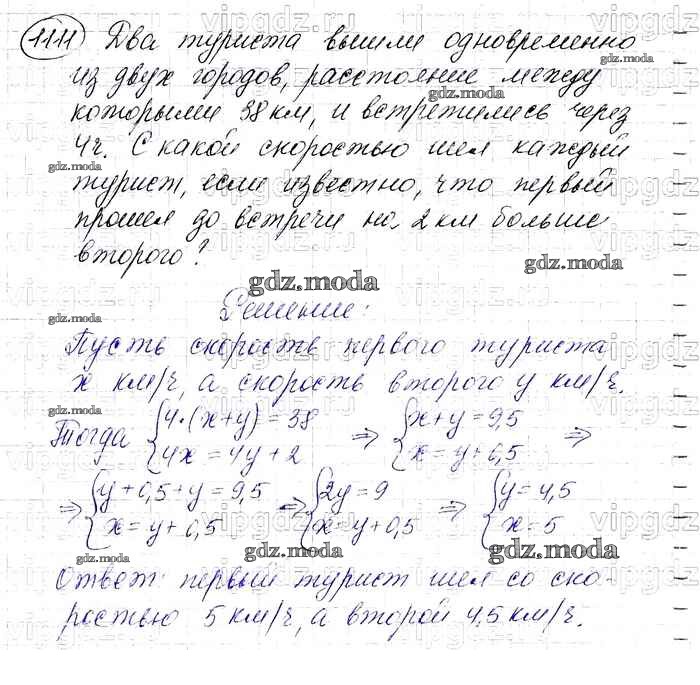 1111 Два туриста вышли одновременно
из двух городов, расстояние между
gdz.moda
которыми 38 км, и встретились через
4 ч. С какой скоростью шел каждый
gdz.moda
турист, если известно, что первый
прошел до встречи на 2 км больше
второго?
gdz.moda
gdz.moda
Решение:
gdz.moda
Пусть скорость первого туриста
x км/ч, а скорость второго y км/ч.
gdz.moda
Тогда {4·(x+y)=38 ⇒ {x+y=9,5 ⇒
{4x=4y+2 {x=y+0,5
⇒ {y+0,5+y=9,5 ⇒ {2y=9 ⇒ {y=4,5
{x=y+0,5 {x=y+0,5 {x=5
gdz.moda gdz.moda
Ответ: первый турист шел со ско-
gdz.moda
ростью 5 км/ч, а второй 4,5 км/ч.
vipgdz.ru